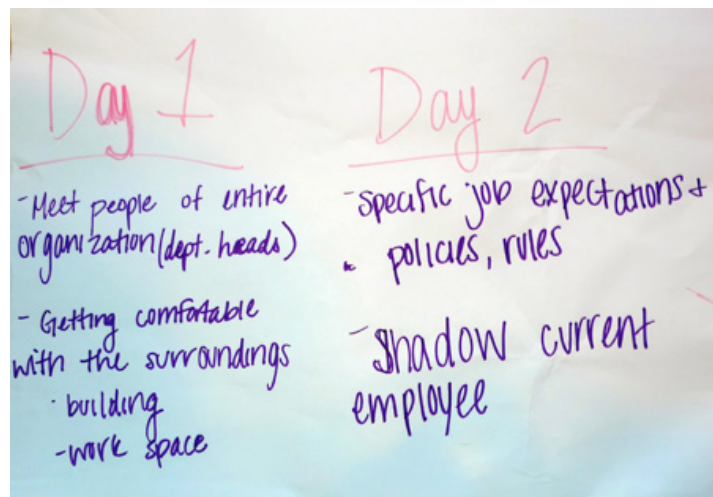 Day 1
- Meet people of entire
organization (dept. heads)
- Getting comfortable
with the surroundings
· building
- work space
Day 2
- Specific job expectations +
policies, rules
- Shadow current
employee